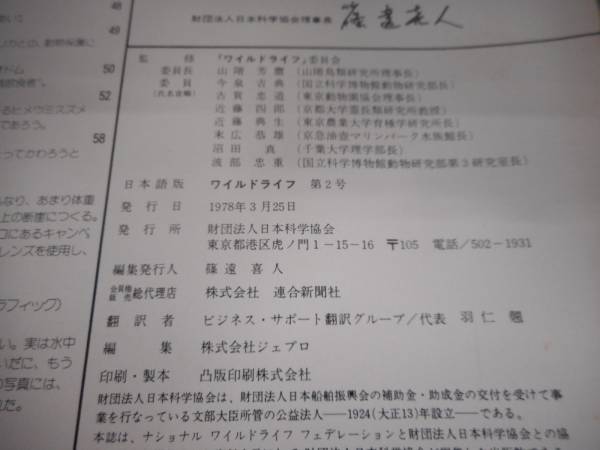 財団法人日本科学協会理事長 篠遠喜人
監修 「ワイルドライフ」委員会
委員長 山階芳麿 (山階鳥類研究所理事長)
委員 今泉吉典 (国立科学博物館動物研究部長)
(氏名音順) 古賀忠道 (東京動物園協会理事長)
近藤四郎 (京都大学霊長類研究所教授)
近藤典生 (東京農業大学育種学研究所長)
末広恭雄 (京急油壺マリンパーク水族館長)
沼田真 (千葉大学理学部長)
渡部忠重 (国立科学博物館動物研究部第3研究室長)
日本語版 ワイルドライフ 第2号
発行日 1978年3月25日
発行所 財団法人日本科学協会
東京都港区虎ノ門1-15-16 〒105 電話/502-1931
編集発行人 篠遠喜人
会員権販売総代理店 株式会社 連合新聞社
翻訳者 ビジネス・サポート翻訳グループ/代表 羽仁 翹
編集 株式会社ジェプロ
印刷・製本 凸版印刷株式会社
財団法人日本科学協会は、財団法人日本船舶振興会の補助金・助成金の交付を受けて事
業を行なっている文部大臣所管の公益法人——1924(大正13)年設立——である。
本誌は、ナショナル ワイルドライフ フェデレーションと財団法人日本科学協会との協
48
50
52
58
ドム
るヒメウミスズメ
であろう。
とってかわろうと
なり、あまり体重
上の断崖につくる。
コにあるキャンベ
レンズを使用し、
ラフィック)
い。実は水中
いだに、もう
の写真には、
れた。